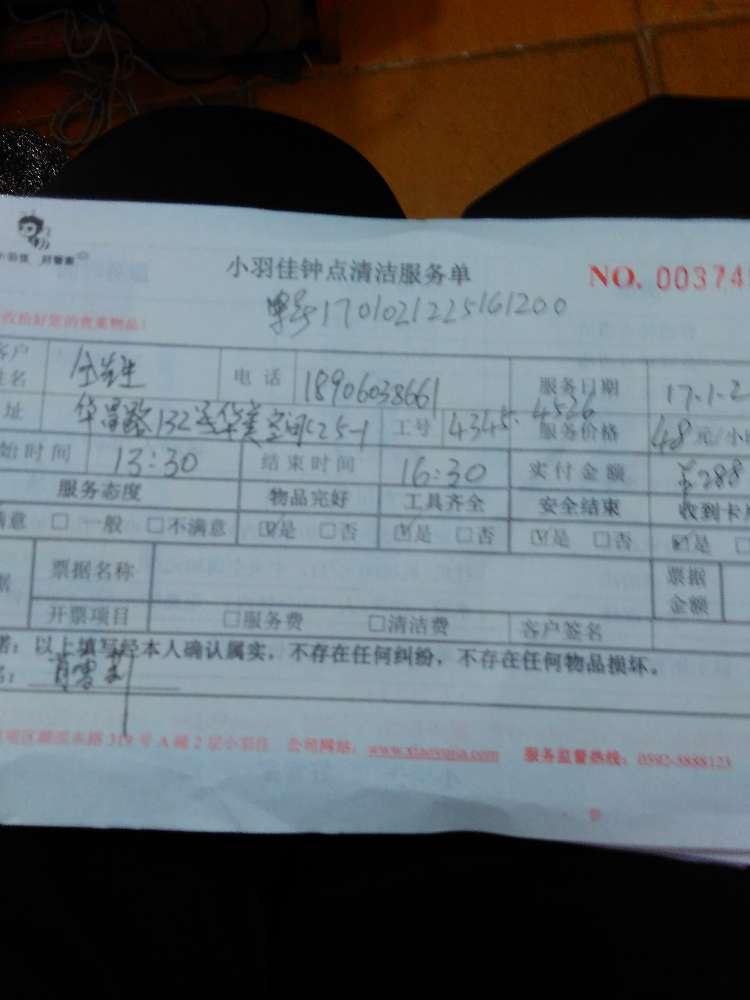 小羽佳 好管家
小羽佳钟点清洁服务单 NO. 00374
单号1701021225161200
收拾好您的贵重物品!
客户姓名 电话 18906038661 服务日期 17.1.2
址 华昌路132号华美空间C25-1 工号 4345. 4526 服务价格 48元/小
始时间 13:30 结束时间 16:30 实付金额 ¥288
服务态度 物品完好 工具齐全 安全结束 收到卡
满意 □一般 □不满意 ☑是 □否 ☑是 □否 ☑是 □否 ☑是
据 票据名称 票据金额
开票项目 □服务费 □清洁费 客户签名
诺:以上填写经本人确认属实,不存在任何纠纷,不存在任何物品损坏。
湖滨东路319号A座2层小羽佳 公司网站:www.xiaoyujia.com 服务监督热线:0592-5888123